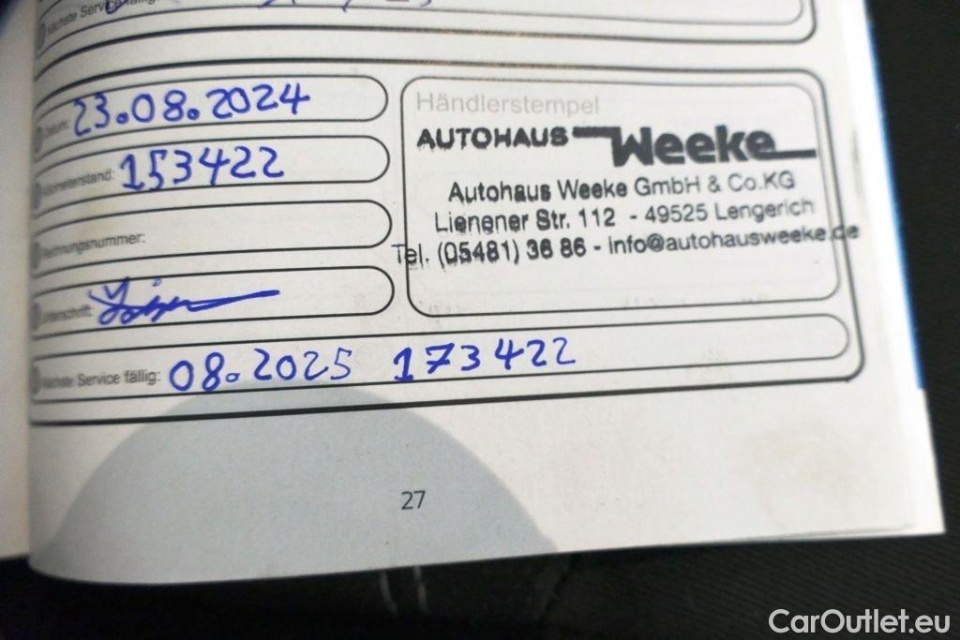 Nächste Service fällig:
Datum: 23.08.2024
Kilometerstand: 153422
Rechnungsnummer:
Unterschrift:
Händlerstempel
AUTOHAUS Weeke
Autohaus Weeke GmbH & Co.KG
Lienener Str. 112 - 49525 Lengerich
Tel. (05481) 36 86 - info@autohausweeke.de
Nächste Service fällig: 08.2025 173422
27
CarOutlet.eu